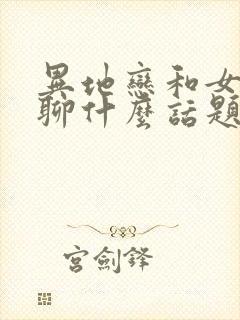 異地戀和女
聊什麼話題
宮劍鋒